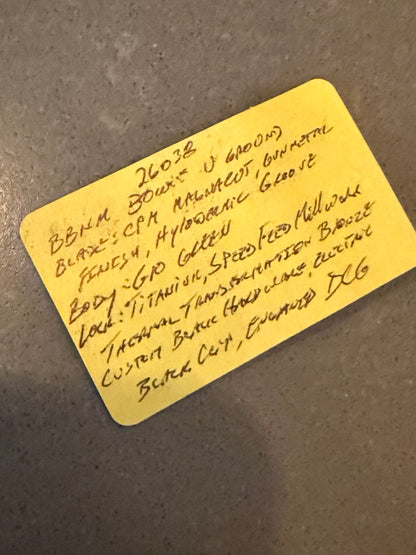 26038
BBNM BOWIE U GROUND
BLADE: CPM MAGNACUT, GUNMETAL
FINISH, HYPODERMIC GROOVE
BODY: G10 GREEN
LOCK: TITANIUM, SPEED FEED MILLWORK
THERMAL TRANSFORMATION BRONZE
CUSTOM BLACK HARDWARE,
BLACK CLIP, ENGRAVED DCG